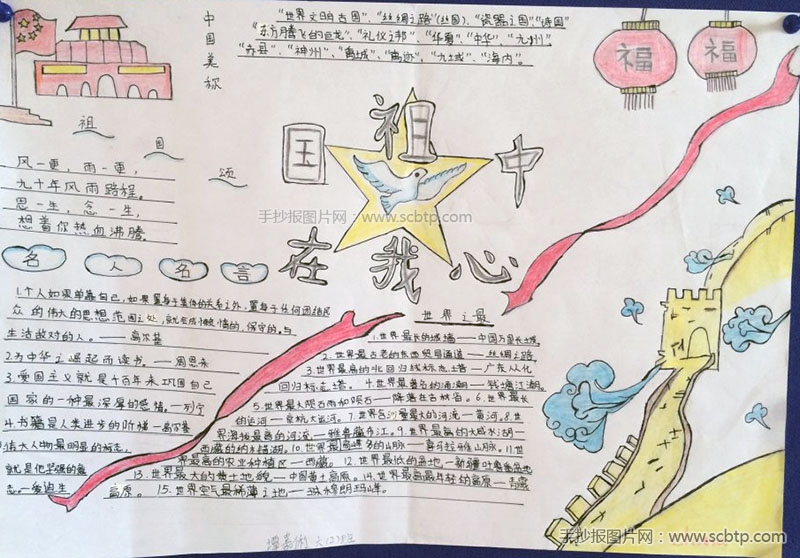 中国美称
"世界文明古国"、"丝绸之路"(丝国)、"瓷器之国"、"诗国"
"东方腾飞的巨龙"、"礼仪之邦"、"华夏"、"中华"、"九州"、
"赤县"、"神州"、"禹域"、"禹迹"、"九域"、"海内"。
福
福
祖国颂
风一更，雨一更，
九十年风雨路程。
思一生，念一生，
想着你热血沸腾。
祖国在我心中
手抄报图片网：www.scbtp.com
名人名言
1.个人如果单靠自己，如果置身于集体的关系之外，置身于任何团结民
众的伟大的思想范围之外，就会成
惰的，保守的，与
生活敌对的人。——高尔基
2.为中华之崛起而读书。——周恩来
3.爱国主义就是千百年来巩固自己
国家的一种最深厚的感情。——列宁
4.书籍是人类进步的阶梯——高尔基
伟大人物最明显的标志，
就是他坚强的意
志。——爱迪生
世界之最
1.世界最长的城墙——中国万里长城。
2.世界最古老的东西贸易通道——丝绸之路。
3.世界最高的北回归线标志塔——广东从化
回归标志塔。4.世界最著名的涌潮——钱塘江潮。
5.世界最大陨石雨和陨石——降落在吉林省。6.世界最长
的运河——京杭大运河。7.世界含沙量最大的河流——黄河。8.世
界海拔最高的河流——雅鲁藏布江。9.世界最高的大咸水湖——
西藏的纳木错湖。10.世界最高峰多的山脉——喜马拉雅山脉。11.世
界最高的农业种植区——西藏。12.世界最低的盆地——新疆吐鲁番盆地
13.世界最大的黄土地貌——中国黄土高原。14.世界最高最年轻的高原——青藏
高原。15.世界空气最稀薄之地——珠穆朗玛峰。
手抄报图片网：www.scbtp.com